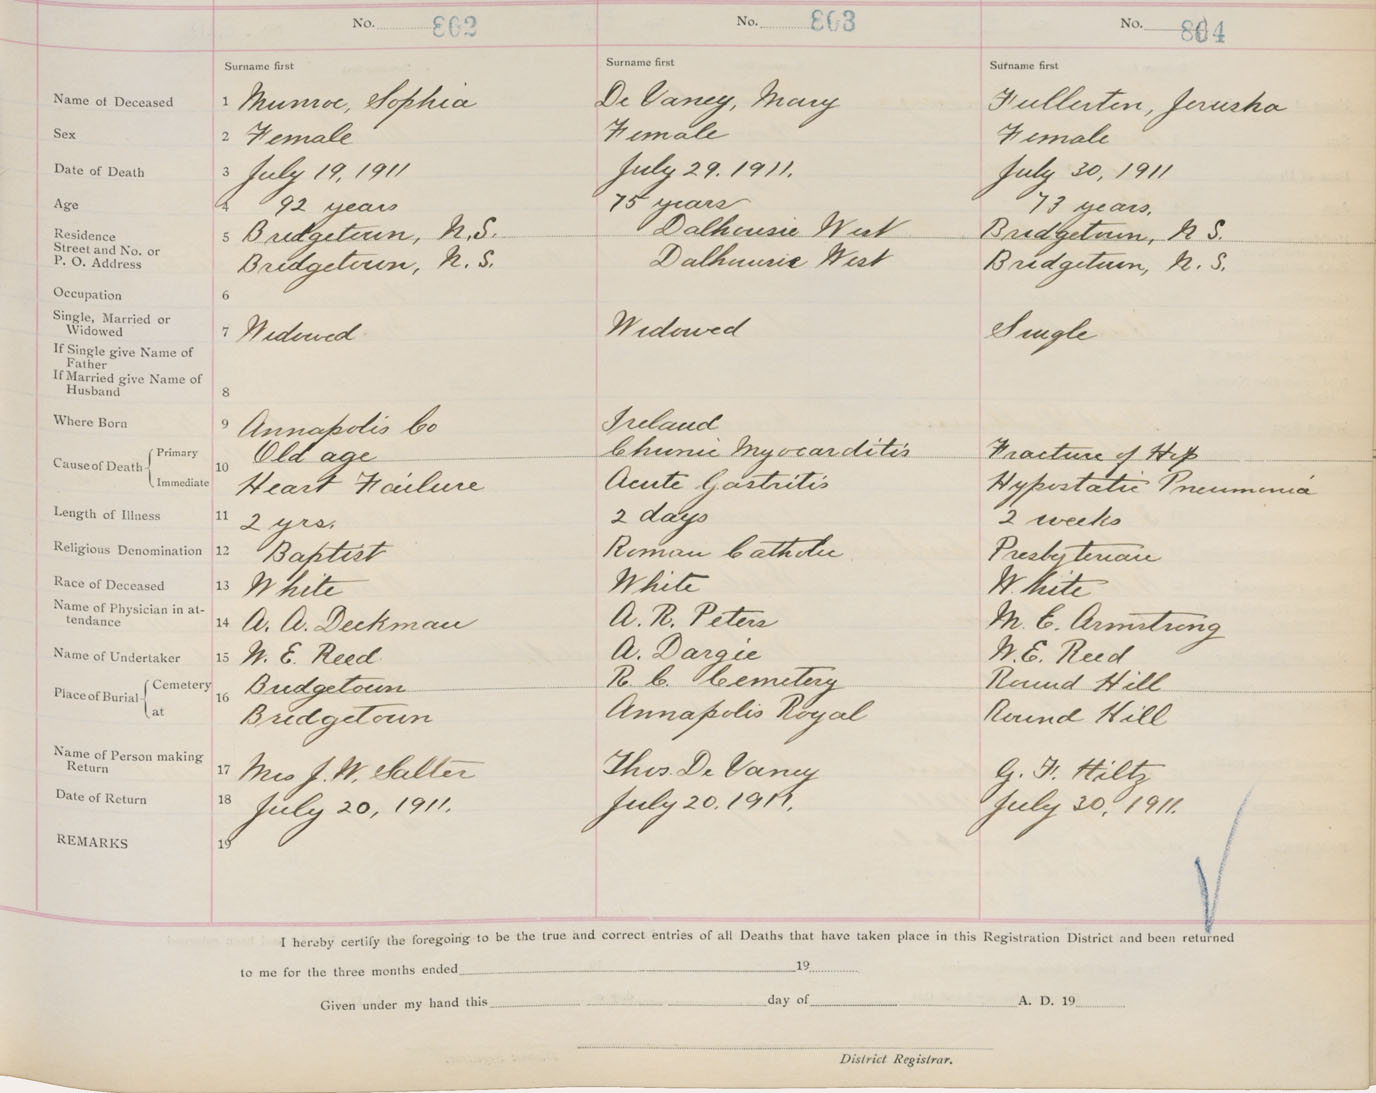 No. 802 No. 803 No. 804
Surname first Surname first Surname first
Name of Deceased 1 Munroe, Sophia De Vaney, Mary Fullerton, Jerusha
Sex 2 Female Female Female
Date of Death 3 July 19, 1911 July 29. 1911. July 30, 1911
Age 4 92 years 75 years 73 years.
Residence 5 Bridgetown, N.S. Dalhousie West Bridgetown, N S.
Street and No. or
P. O. Address Bridgetown, N. S. Dalhousie West Bridgetown, N. S.
Occupation 6
Single, Married or
Widowed 7 Widowed Widowed Single
If Single give Name of
Father
If Married give Name of
Husband 8
Where Born 9 Annapolis Co Ireland
Cause of Death Primary 10 Old age Chronic Myocarditis Fracture of Hip
Immediate Heart Failure Acute Gastritis Hypostatic Pneumonia
Length of Illness 11 2 yrs. 2 days 2 weeks
Religious Denomination 12 Baptist Roman Catholic Presbyterian
Race of Deceased 13 White White White
Name of Physician in at-
tendance 14 A. A. Deckman A. R. Peters M. E. Armstrong
Name of Undertaker 15 W. E. Reed A. Dargie W. E. Reed
Place of Burial Cemetery 16 Bridgetown R. C. Cemetery Round Hill
at Bridgetown Annapolis Royal Round Hill
Name of Person making
Return 17 Mrs J. W. Salter Thos. De Vaney G. F. Hiltz
Date of Return 18 July 20, 1911. July 20. 1911. July 30, 1911.
REMARKS 19
I hereby certify the foregoing to be the true and correct entries of all Deaths that have taken place in this Registration District and been returned
to me for the three months ended 19
Given under my hand this day of A. D. 19
District Registrar.